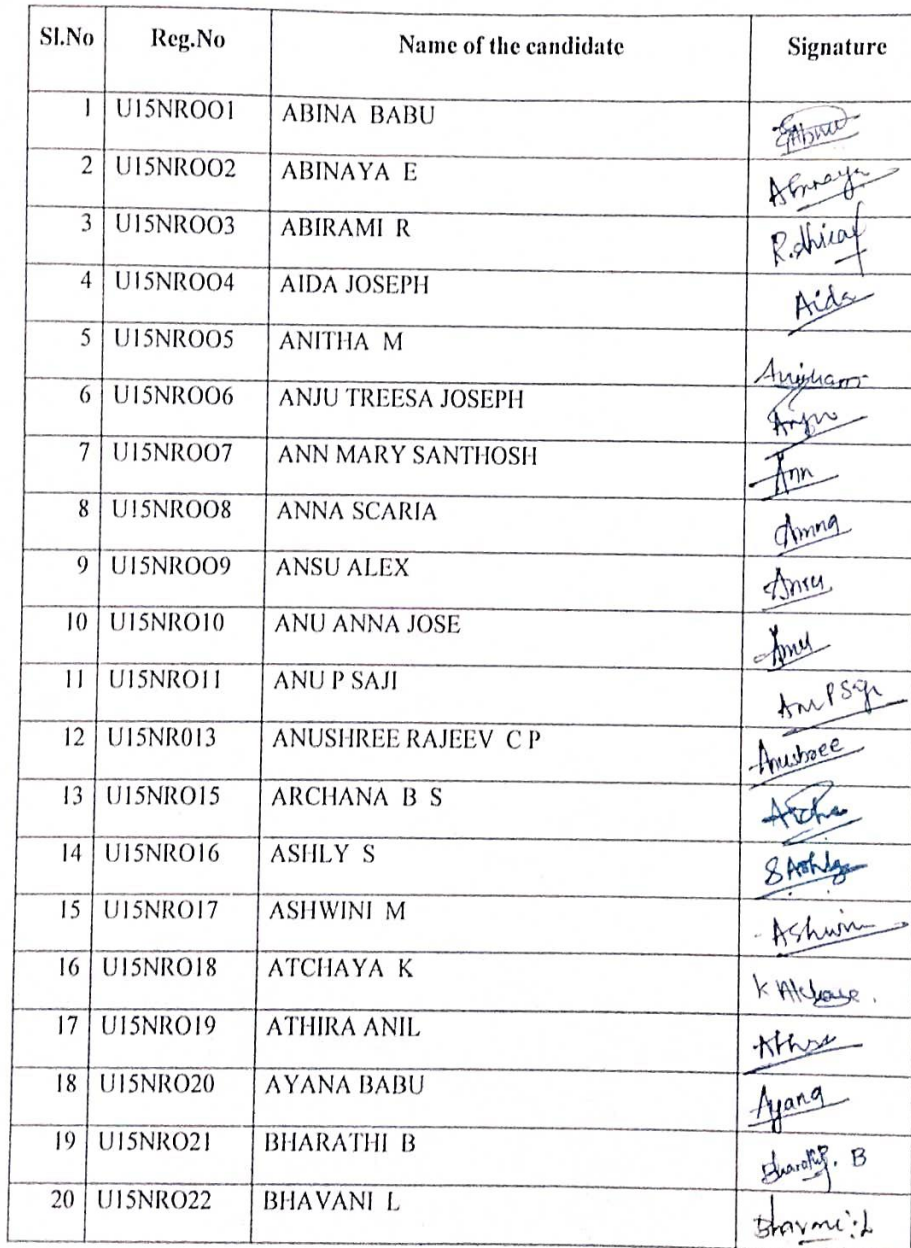 Sl.No Reg.No Name of the candidate Signature
1 U15NROO1 ABINA BABU
2 U15NROO2 ABINAYA E Abinaya
3 U15NROO3 ABIRAMI R
4 U15NROO4 AIDA JOSEPH Aida
5 U15NROO5 ANITHA M
6 U15NROO6 ANJU TREESA JOSEPH Anju
7 U15NROO7 ANN MARY SANTHOSH Ann
8 U15NROO8 ANNA SCARIA Anna
9 U15NROO9 ANSU ALEX Ansu
10 U15NRO10 ANU ANNA JOSE Anu
11 U15NRO11 ANU P SAJI Anu P Saji
12 U15NR013 ANUSHREE RAJEEV C P Anushree
13 U15NRO15 ARCHANA B S
14 U15NRO16 ASHLY S S Ashly
15 U15NRO17 ASHWINI M Ashwini
16 U15NRO18 ATCHAYA K
17 U15NRO19 ATHIRA ANIL
18 U15NRO20 AYANA BABU Ayana
19 U15NRO21 BHARATHI B Bharathi. B
20 U15NRO22 BHAVANI L Bhavani. L